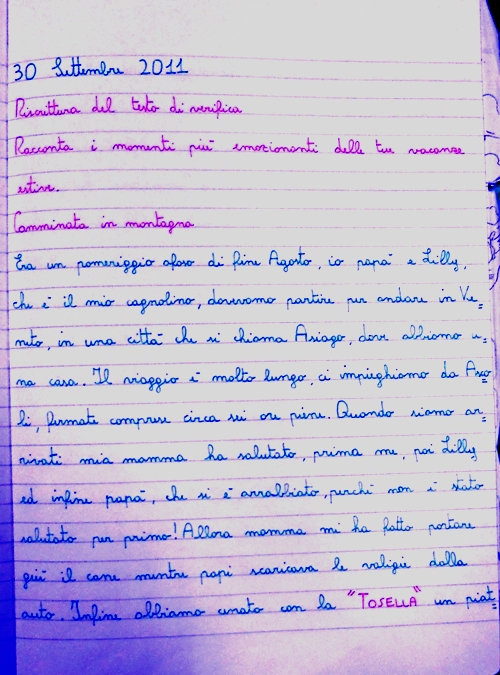 30 Settembre 2011
Riscrittura del testo di verifica
Racconta i momenti più emozionanti delle tue vacanze
estive.
Camminata in montagna
Era un pomeriggio afoso di fine Agosto, io papà e Lilly,
che è il mio cagnolino, dovevamo partire per andare in Ve=
neto, in una città che si chiama Asiago, dove abbiamo u=
na casa. Il viaggio è molto lungo, ci impieghiamo da Asco
li, fermate comprese circa sei ore piene. Quando siamo ar=
rivati mia mamma ha salutato, prima me, poi Lilly
ed infine papà, che si è arrabbiato, perché non è stato
salutato per primo! Allora mamma mi ha fatto portare
giù il cane mentre papi scaricava le valigie dalla
auto. Infine abbiamo cenato con la "TOSELLA" un piat=